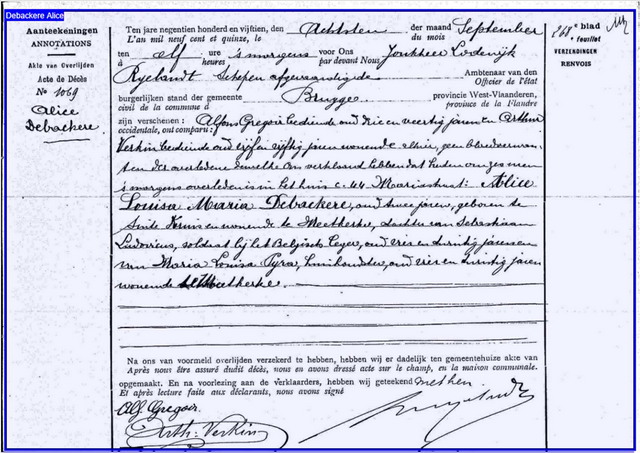 Debackere Alice
Aanteekeningen
ANNOTATIONS
Akte van Overlijden
Acte de Décès
No 1069
Alice
Debackere
Ten jare negentien honderd en vijftien, den Achtsten der maand September
L'an mil neuf cent et quinze, le du mois de
ten elf ure 's morgens voor Ons Jonkheer Lodewijk
à heures par devant Nous
Ryelandt Schepen afgevaardigde Ambtenaar van den
Officier de l'état
burgerlijken stand der gemeente Brugge provincie West-Vlaanderen,
civil de la commune d province de la Flandre
zijn verschenen : Alfons Gregoir bediende oud drie en veertig jaren en Arthur
occidentale, ont comparu :
Verkin bediende oud vijf en vijftig jaren wonende alhier, geen bloedverwan-
ten der overledene dewelke Ons verklaard hebben dat heden om zes uren
's morgens overleden is in het huis C. 44 Mariastraat: Alice
Louisa Maria Debackere, oud twee jaren, geboren te
Sinte Kruis en wonende te Meetkerke, dochter van Sebastiaan
Ludovicus, soldaat bij het Belgisch Leger, oud vier en dertig jaren en
van Maria Louisa Pyra, huishoudster, oud vier en dertig jaren
wonende te Meetkerke.
268e blad
e feuillet
VERZENDINGEN
RENVOIS
Na ons van voormeld overlijden verzekerd te hebben, hebben wij er dadelijk ten gemeentehuize akte van
Après nous être assuré dudit décès, nous en avons dressé acte sur le champ, en la maison communale.
opgemaakt. En na voorlezing aan de verklaarders, hebben wij geteekend met hen.
Et après lecture faite aux déclarants, nous avons signé
Alf. Gregoir.
Arth. Verkin